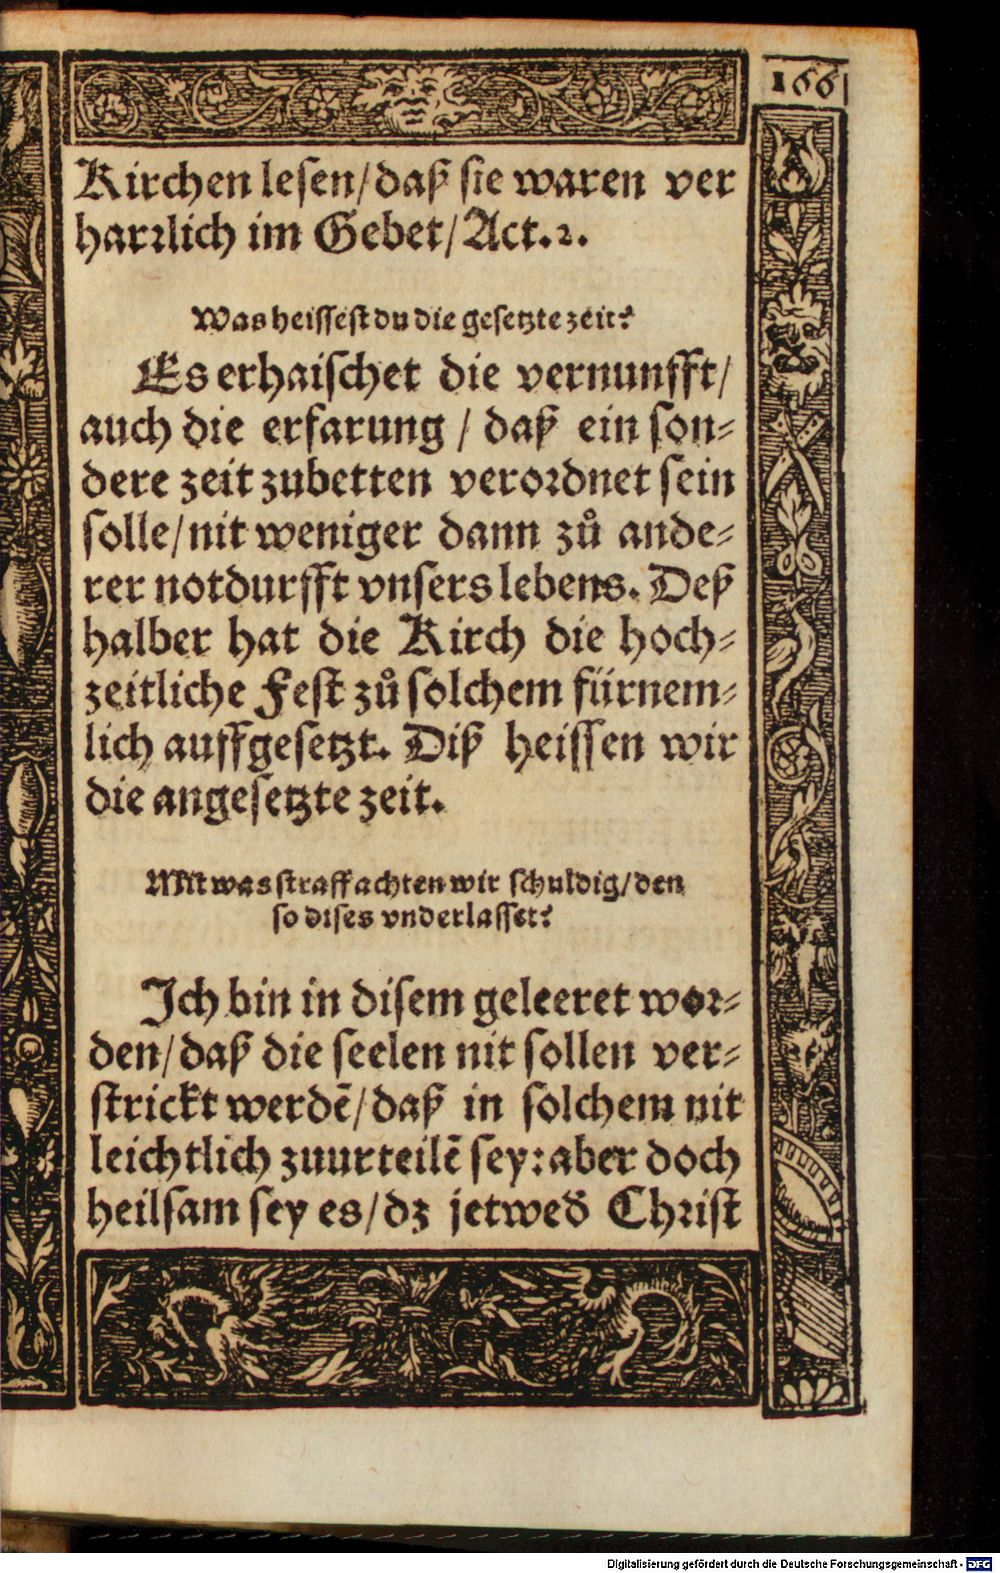 166
Kirchen lesen/daß sie waren ver
harꝛlich im Gebet/Act.2.
Was heissest du die gesetzte zeit?
Es erhaischet die vernunfft/
auch die erfarung / daß ein son⸗
dere zeit zubetten veroꝛdnet sein
solle/nit weniger dann zů ande⸗
rer notdurfft vnsers lebens. Deß
halber hat die Kirch die hoch⸗
zeitliche Fest zů solchem fürnem⸗
lich auffgesetzt. Diß heissen wir
die angesetzte zeit.
Mit was straff achten wir schuldig/den
so dises vnderlasset?
Ich bin in disem geleeret woꝛ⸗
den/daß die seelen nit sollen ver⸗
strickt werdẽ/daß in solchem nit
leichtlich zuurteilẽ sey: aber doch
heilsam sey es/dz jetwed̃ Chꝛist
Digitalisierung gefördert durch die Deutsche Forschungsgemeinschaft - DFG